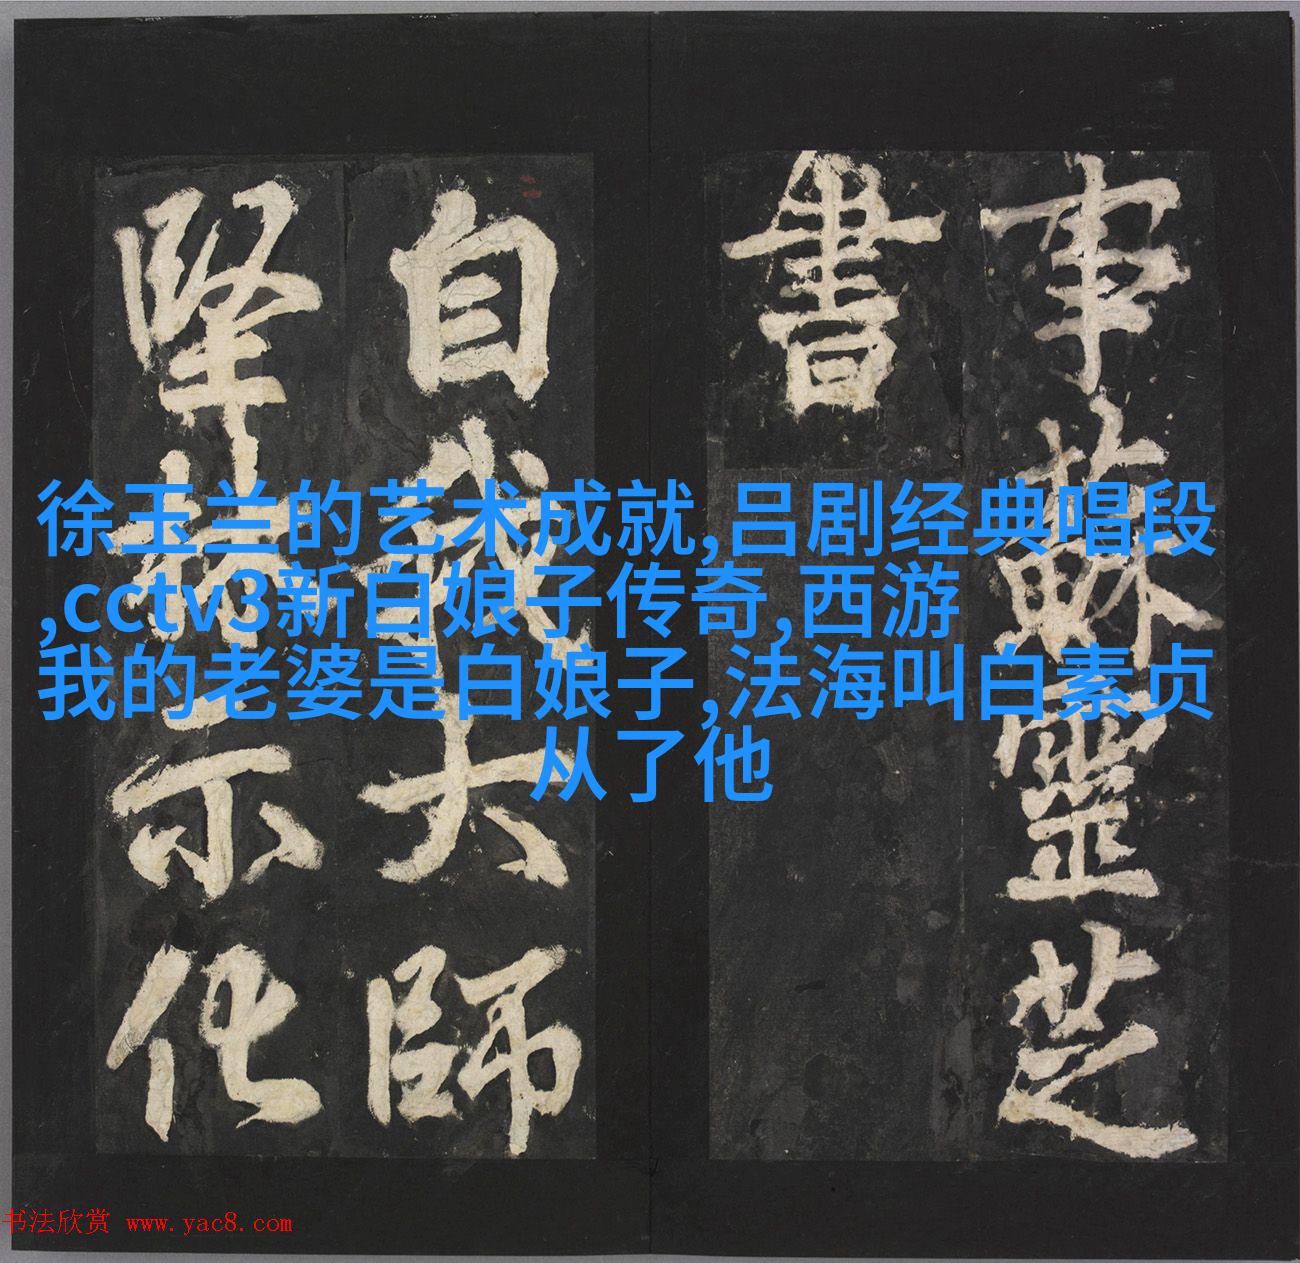 事蘇靈芝
書
自大師
堅示化
徐玉兰的艺术成就,吕剧经典唱段
,cctv3新白娘子传奇,西游
我的老婆是白娘子,法海叫白素贞
从了他
书法欣赏 www.yac8.com